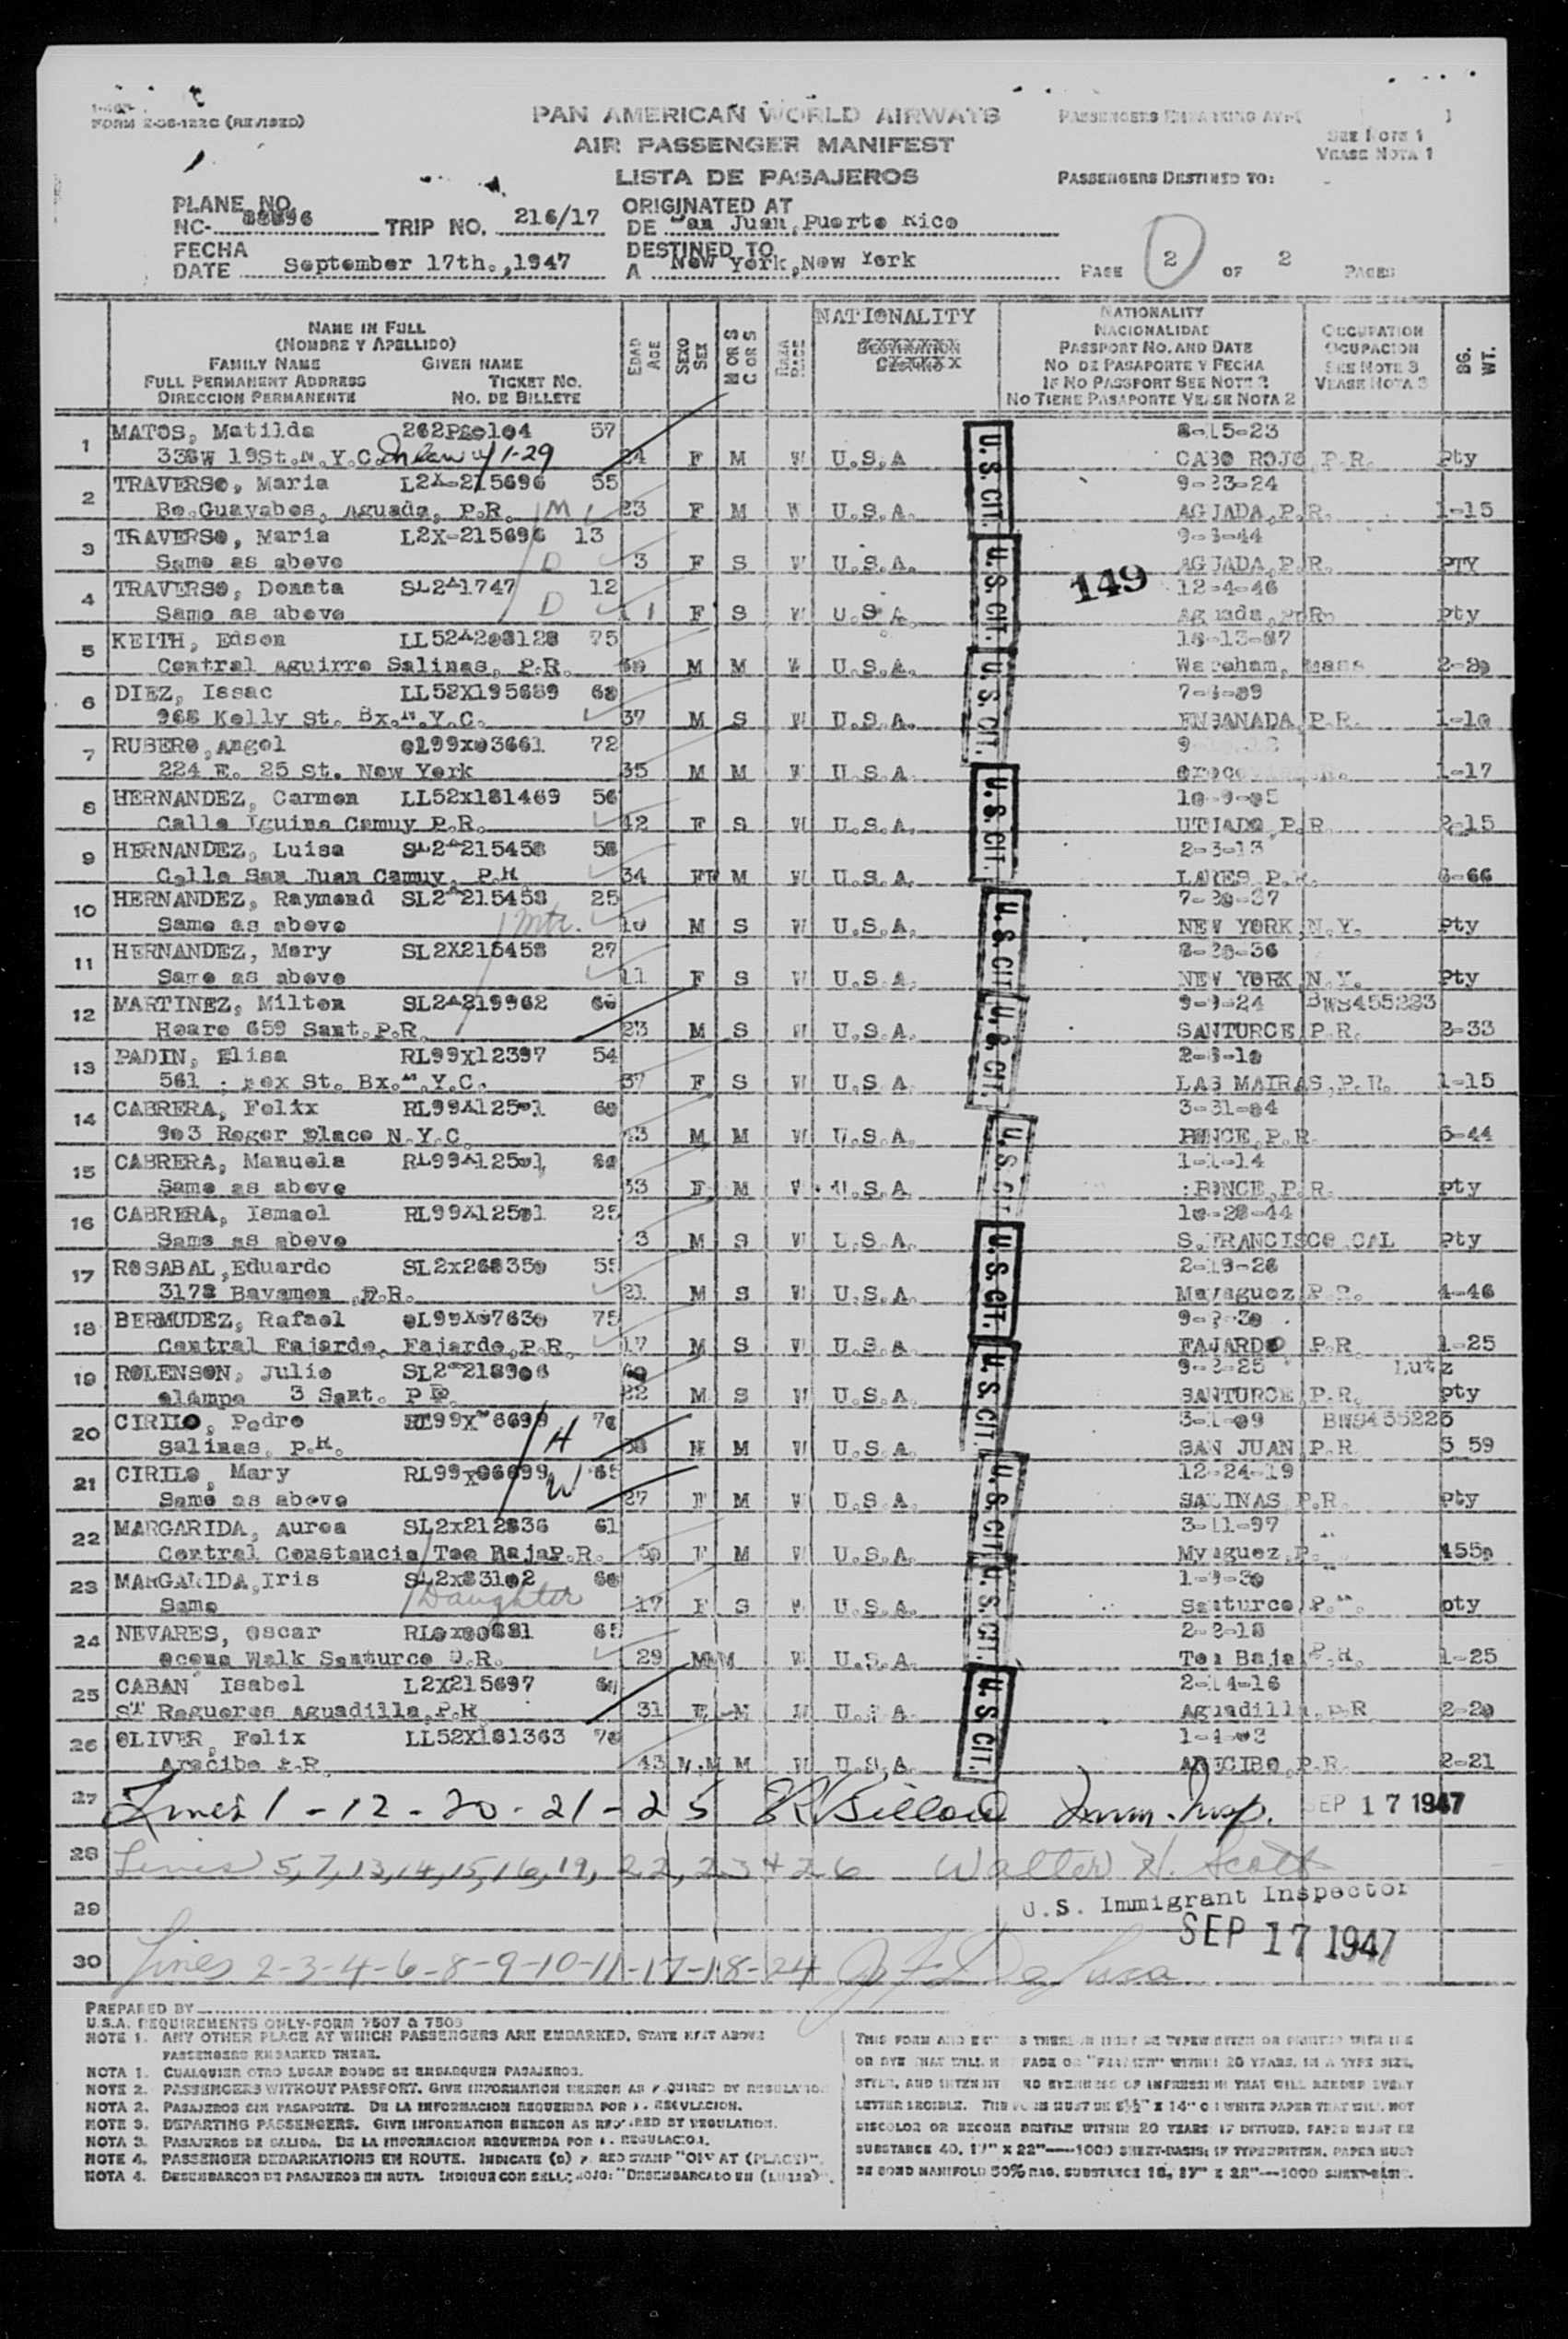 FORM 2-06-122C (REVISED)
PAN AMERICAN WORLD AIRWAYS
AIR PASSENGER MANIFEST
LISTA DE PASAJEROS
PASSENGERS EMBARKING AT:
SEE NOTE 1
VEASE NOTA 1
PASSENGERS DESTINED TO:
PLANE NO.
NC- TRIP NO. 216/17
ORIGINATED AT
DE San Juan, Puerto Rico
FECHA
DATE September 17th.,1947
DESTINED TO
A New York,New York
PAGE 2 OF 2 PAGES
NAME IN FULL
(NOMBRE Y APELLIDO)
FAMILY NAME GIVEN NAME
FULL PERMANENT ADDRESS TICKET NO.
DIRECCION PERMANENTE NO. DE BILLETE
EDAD AGE
SEXO SEX
M OR S
C OR S
RAZA RACE
NATIONALITY
NATIONALITY
NACIONALIDAD
PASSPORT NO. AND DATE
NO DE PASAPORTE Y FECHA
IF NO PASSPORT SEE NOTE 2
NO TIENE PASAPORTE VEASE NOTA 2
OCCUPATION
OCUPACION
SEE NOTE 3
VEASE NOTA 3
BG. WT.
1 MATOS, Matilda 57 8-15-23
336W 19St.N.Y.C. 24 F M W U.S.A CABO ROJO, P.R. Pty
2 TRAVERSO, Maria L2X-215696 55 9-23-24
Bo.Guayabos, Aguada, P.R. M 23 F M W U.S.A. AGUADA,P.R. 1-15
3 TRAVERSO, Maria L2X-215696 13 9-3-44
Same as above D 3 F S W U.S.A. AGUADA,P.R. PTY
149
4 TRAVERSO, Donata SL2X1747 12 12-4-46
Same as above D 1 F S W U.S.A Aguada,P.R. Pty
5 KEITH, Edson LL52X208128 75
Central Aguirre Salinas, P.R. M M W U.S.A. Wareham, Mass 2-20
6 DIEZ, Issac LL52X195689 68
968 Kelly St. Bx.N.Y.C. 37 M S W U.S.A. ENSANADA,P.R. 1-10
7 RUBERO,Angel 0L99x03661 72
224 E. 25 St. New York 35 M M W U.S.A 1-17
8 HERNANDEZ, Carmen LL52x181469 56 10-9-05
Calle Iguina Camuy P.R. 42 F S W U.S.A. UTUADO,P.R 2-15
9 HERNANDEZ, Luisa SL2X215458 58 2-3-13
Calle San Juan Camuy, P.R 34 F M W U.S.A. LARES P.R. 6-66
10 HERNANDEZ, Raymond SL2X215458 25 7-20-37
Same as above Mtr. 10 M S W U.S.A. NEW YORK,N.Y. Pty
11 HERNANDEZ, Mary SL2X215458 27 8-20-36
Same as above 11 F S W U.S.A. NEW YORK,N.Y. Pty
12 MARTINEZ, Milton SL2X219962 60 9-9-24 BWS455223
Hoare 659 Sant.P.R. 23 M S W U.S.A. SANTURCE,P.R. 2-33
13 PADIN, Elisa RL99X12397 54
561 St. Bx.N.Y.C. 37 F S W U.S.A. LAS MAIRAS,P.R. 1-15
14 CABRERA, Felix RL99X12501 60 3-31-04
903 Roger Place N.Y.C. 43 M M W U.S.A. PONCE,P.R. 5-44
15 CABRERA, Manuela RL99X12501 1-1-14
Same as above 33 F M W U.S.A PONCE,P.R. Pty
16 CABRERA, Ismael RL99X12501 25 10-28-44
Same as above 3 M S W U.S.A. S.FRANCISCO CAL Pty
17 ROSABAL,Eduardo SL2x268350 55 2-19-26
3178 Bayamon ,P.R. 21 M S W U.S.A. Mayaguez P.R. 4-46
18 BERMUDEZ, Rafael 0L99X07630 75
Central Fajardo, Fajardo,P.R. 17 M S W U.S.A. FAJARDO P.R 1-25
19 ROLENSON, Julio SL2X218906 60 9-2-25 Lutz
Olimpo 3 Sant. P.R. 22 M S W U.S.A. SANTURCE P.R. Pty
20 CIRILO, Pedro 70 3-1-09 BWS455225
Salinas, P.R. H 38 M M W U.S.A. SAN JUAN P.R 5 59
21 CIRILO, Mary RL99X06699 65 12-24-19
Same as above W 27 F M W U.S.A. SALINAS P.R. Pty
22 MARGARIDA, Aurea SL2x212836 61 3-11-97
Central Constancia Toa BajaP.R. 50 F M W U.S.A. Myaguez,P. 4550
23 MARGARIDA,Iris SL2x83102 60 1-9-30
Same Daughter 17 F S W U.S.A. Santurce P.R. pty
24 NEVARES, Oscar 65 2-2-18
Ocean Walk Santurce P.R. 29 M M W U.S.A. Toa Baja P.R. 1-25
25 CABAN Isabel L2X215697 60 2-14-16
ST Regueros Aguadilla,P.R 31 F M W U.S.A. Aguadilla,P.R 2-20
26 OLIVER, Felix LL52X181363 70 1-4-03
Arecibo P.R. 43 M M W U.S.A. ARECIBO,P.R. 2-21
U.S. CIT.
U.S. CIT.
U.S. CIT.
U.S. CIT.
U.S. CIT.
U.S. CIT.
U.S. CIT.
U.S. CIT.
U.S. CIT.
U.S. CIT.
U.S. CIT.
U.S. CIT.
27 Lines 1 - 12 - 20 - 21 - 25 Imm. Insp. SEP 17 1947
28 Lines 5,7,13,14,15,16,19, 22, 23 + 26 Walter H. Scott
29 U.S. Immigrant Inspector
SEP 17 1947
30 Lines 2-3-4-6-8-9-10-11-17-18-24
PREPARED BY
U.S.A. REQUIREMENTS ONLY-FORM 7507 & 7509
NOTE 1. ANY OTHER PLACE AT WHICH PASSENGERS ARE EMBARKED, STATE NEXT ABOVE
PASSENGERS EMBARKED THERE.
NOTA 1. CUALQUIER OTRO LUGAR DONDE SE EMBARQUEN PASAJEROS.
NOTE 2. PASSENGERS WITHOUT PASSPORT. GIVE INFORMATION HEREON AS REQUIRED BY REGULATION
NOTA 2. PASAJEROS SIN PASAPORTE. DE LA INFORMACION REQUERIDA POR REGULACION.
NOTE 3. DEPARTING PASSENGERS. GIVE INFORMATION HEREON AS REQUIRED BY REGULATION.
NOTA 3. PASAJEROS DE SALIDA. DE LA INFORMACION REQUERIDA POR REGULACION.
NOTE 4. PASSENGER DEBARKATIONS EN ROUTE. INDICATE (D) RED STAMP "OFF AT (PLACE)".
NOTA 4. DESEMBARCOS DE PASAJEROS EN RUTA. INDIQUE CON SELLO ROJO: "DESEMBARCADO EN (LUGAR)".
THIS FORM AND ENTRIES THEREIN MUST BE TYPEWRITTEN OR PRINTED WITH INK
OR DYE THAT WILL NOT FADE OR "FEATHER" WITHIN 20 YEARS, IN A TYPE SIZE,
STYLE, AND INTENSITY AND EVENNESS OF IMPRESSION THAT WILL RENDER EVERY
LETTER LEGIBLE. THIS FORM MUST BE 8½" X 14" ON WHITE PAPER THAT WILL NOT
DISCOLOR OR BECOME BRITTLE WITHIN 20 YEARS IF DITTOED, PAPER MUST BE
SUBSTANCE 40, 17" X 22"—1000 SHEET-BASIS; IF TYPEWRITTEN, PAPER MUST
BE BOND MANIFOLD 50% RAG, SUBSTANCE 18, 17" X 22"—1000 SHEET-BASIS.